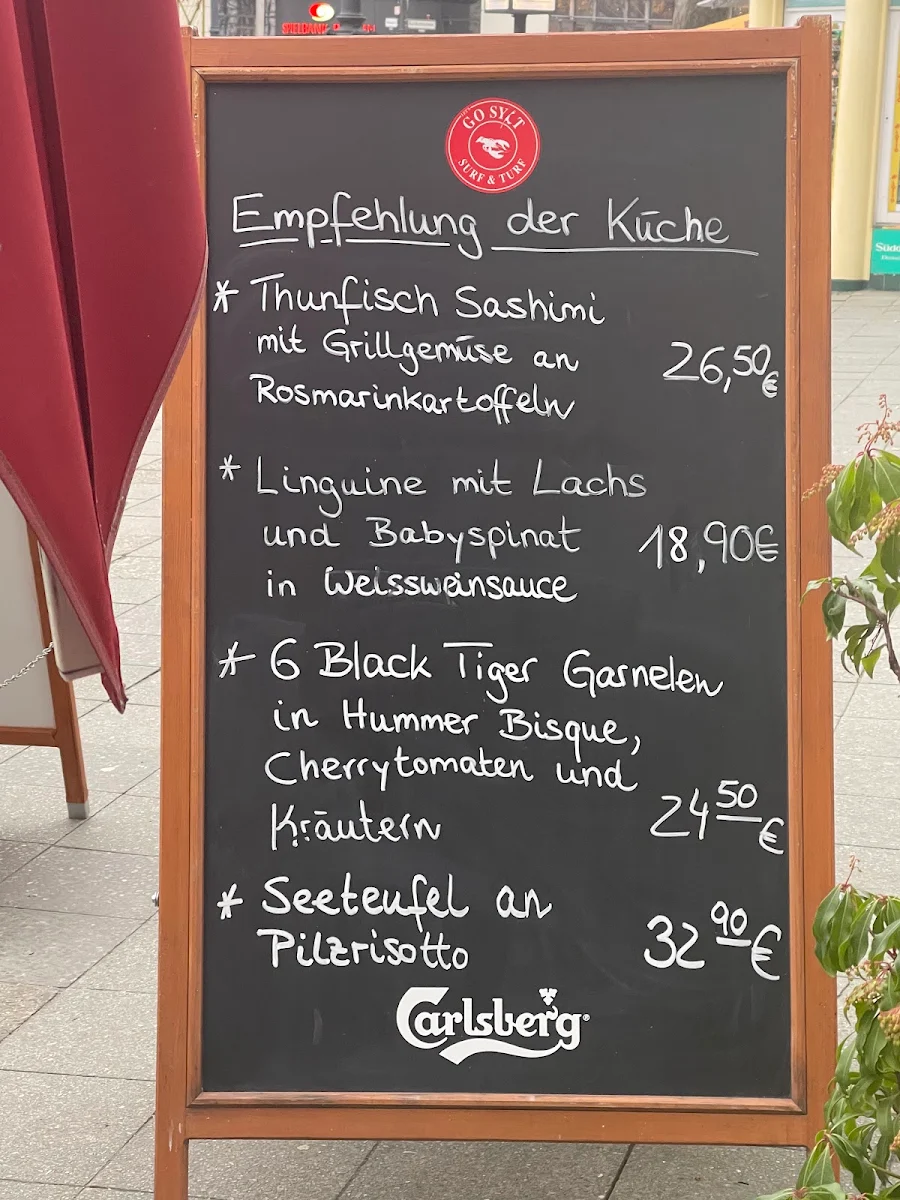 GO SYLT
SURF & TURF
Empfehlung der Küche
* Thunfisch Sashimi
mit Grillgemüse an
Rosmarinkartoffeln
26,50€
* Linguine mit Lachs
und Babyspinat
in Weissweinsauce
18,90€
* 6 Black Tiger Garnelen
in Hummer Bisque,
Cherrytomaten und
Kräutern
24 50 €
* Seeteufel an
Pilzrisotto
32 90 €
Carlsberg